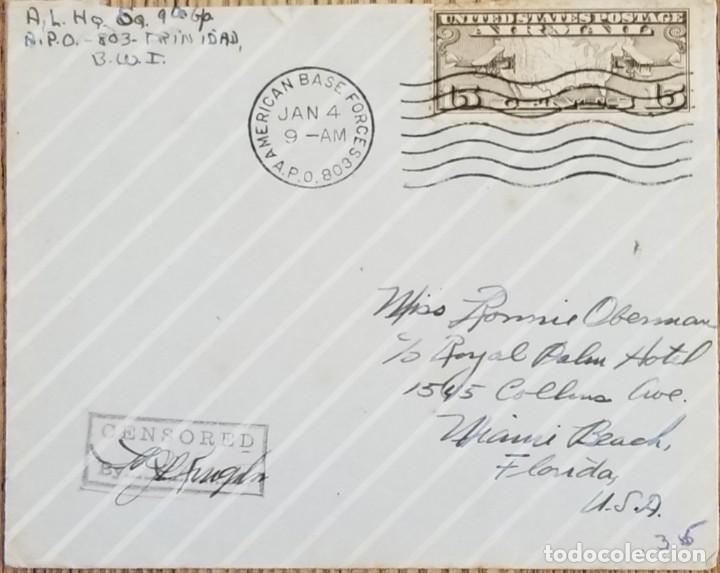 A.L. Hq. Sq. 9th Gp
A.P.O. - 803 - TRINIDAD,
B.W.I.
UNITED STATES POSTAGE
AIR MAIL
15 15
AMERICAN BASE FORCES
JAN 4
9 - AM
A.P.O. 803
Miss Ronnie Oberman
c/o Royal Palm Hotel
1545 Collins Ave.
Miami Beach,
Florida,
U.S.A.
CENSORED
By
35
todocoleccion